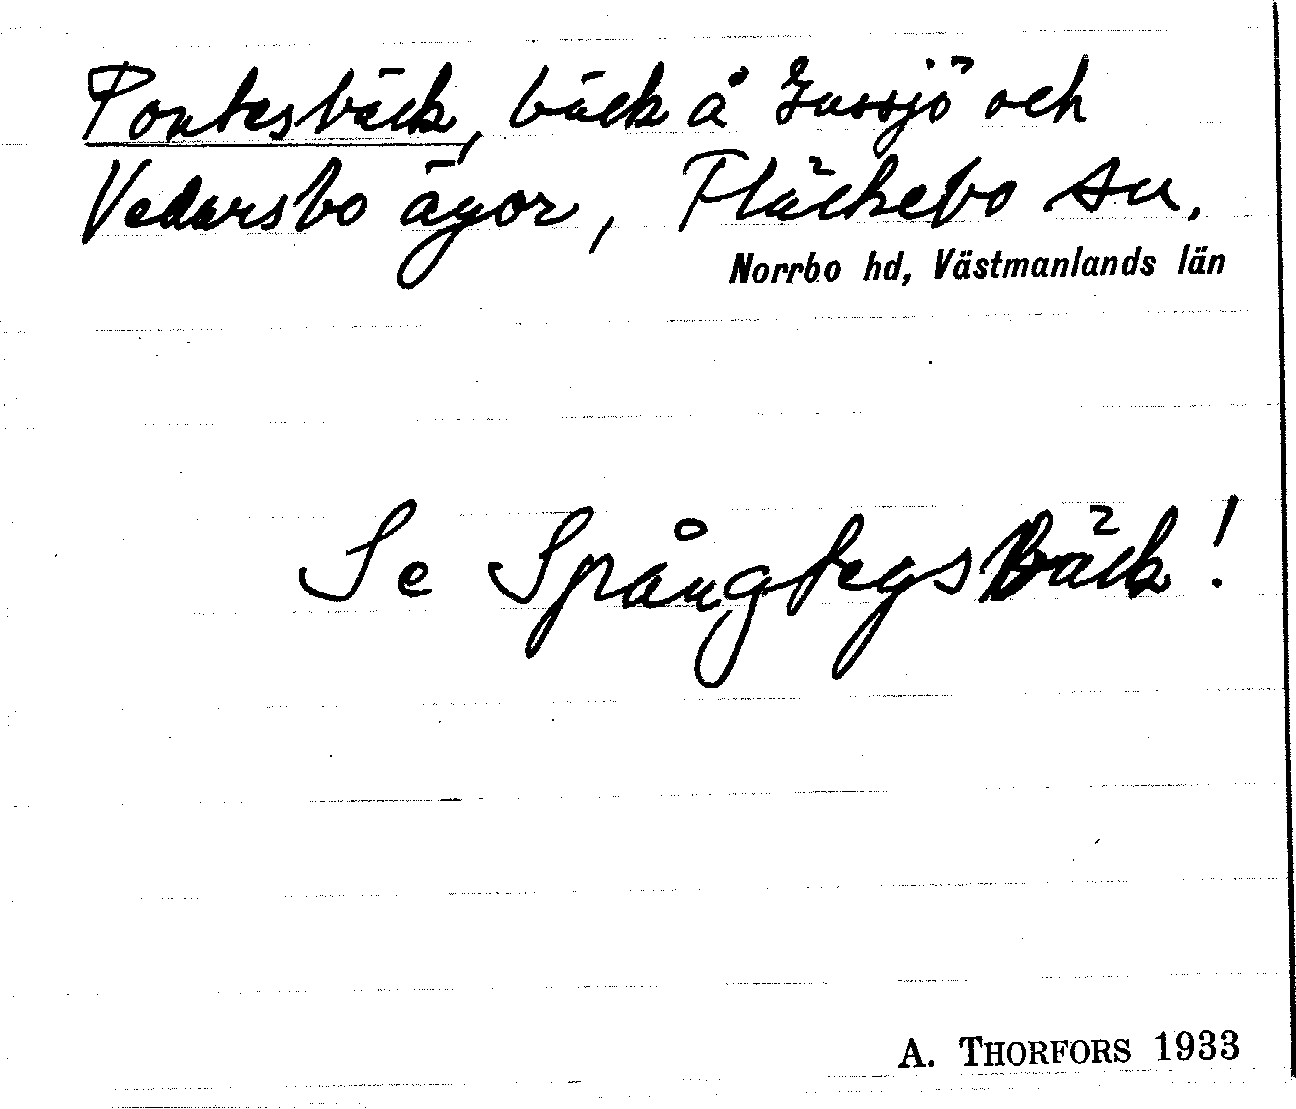 Pontesbäck, bäck å Gussjö och
Vedarsbo ägor, Fläckebo sn.
Norrbo hd, Västmanlands län
Se Spångbergsbäck!
A. THORFORS 1933